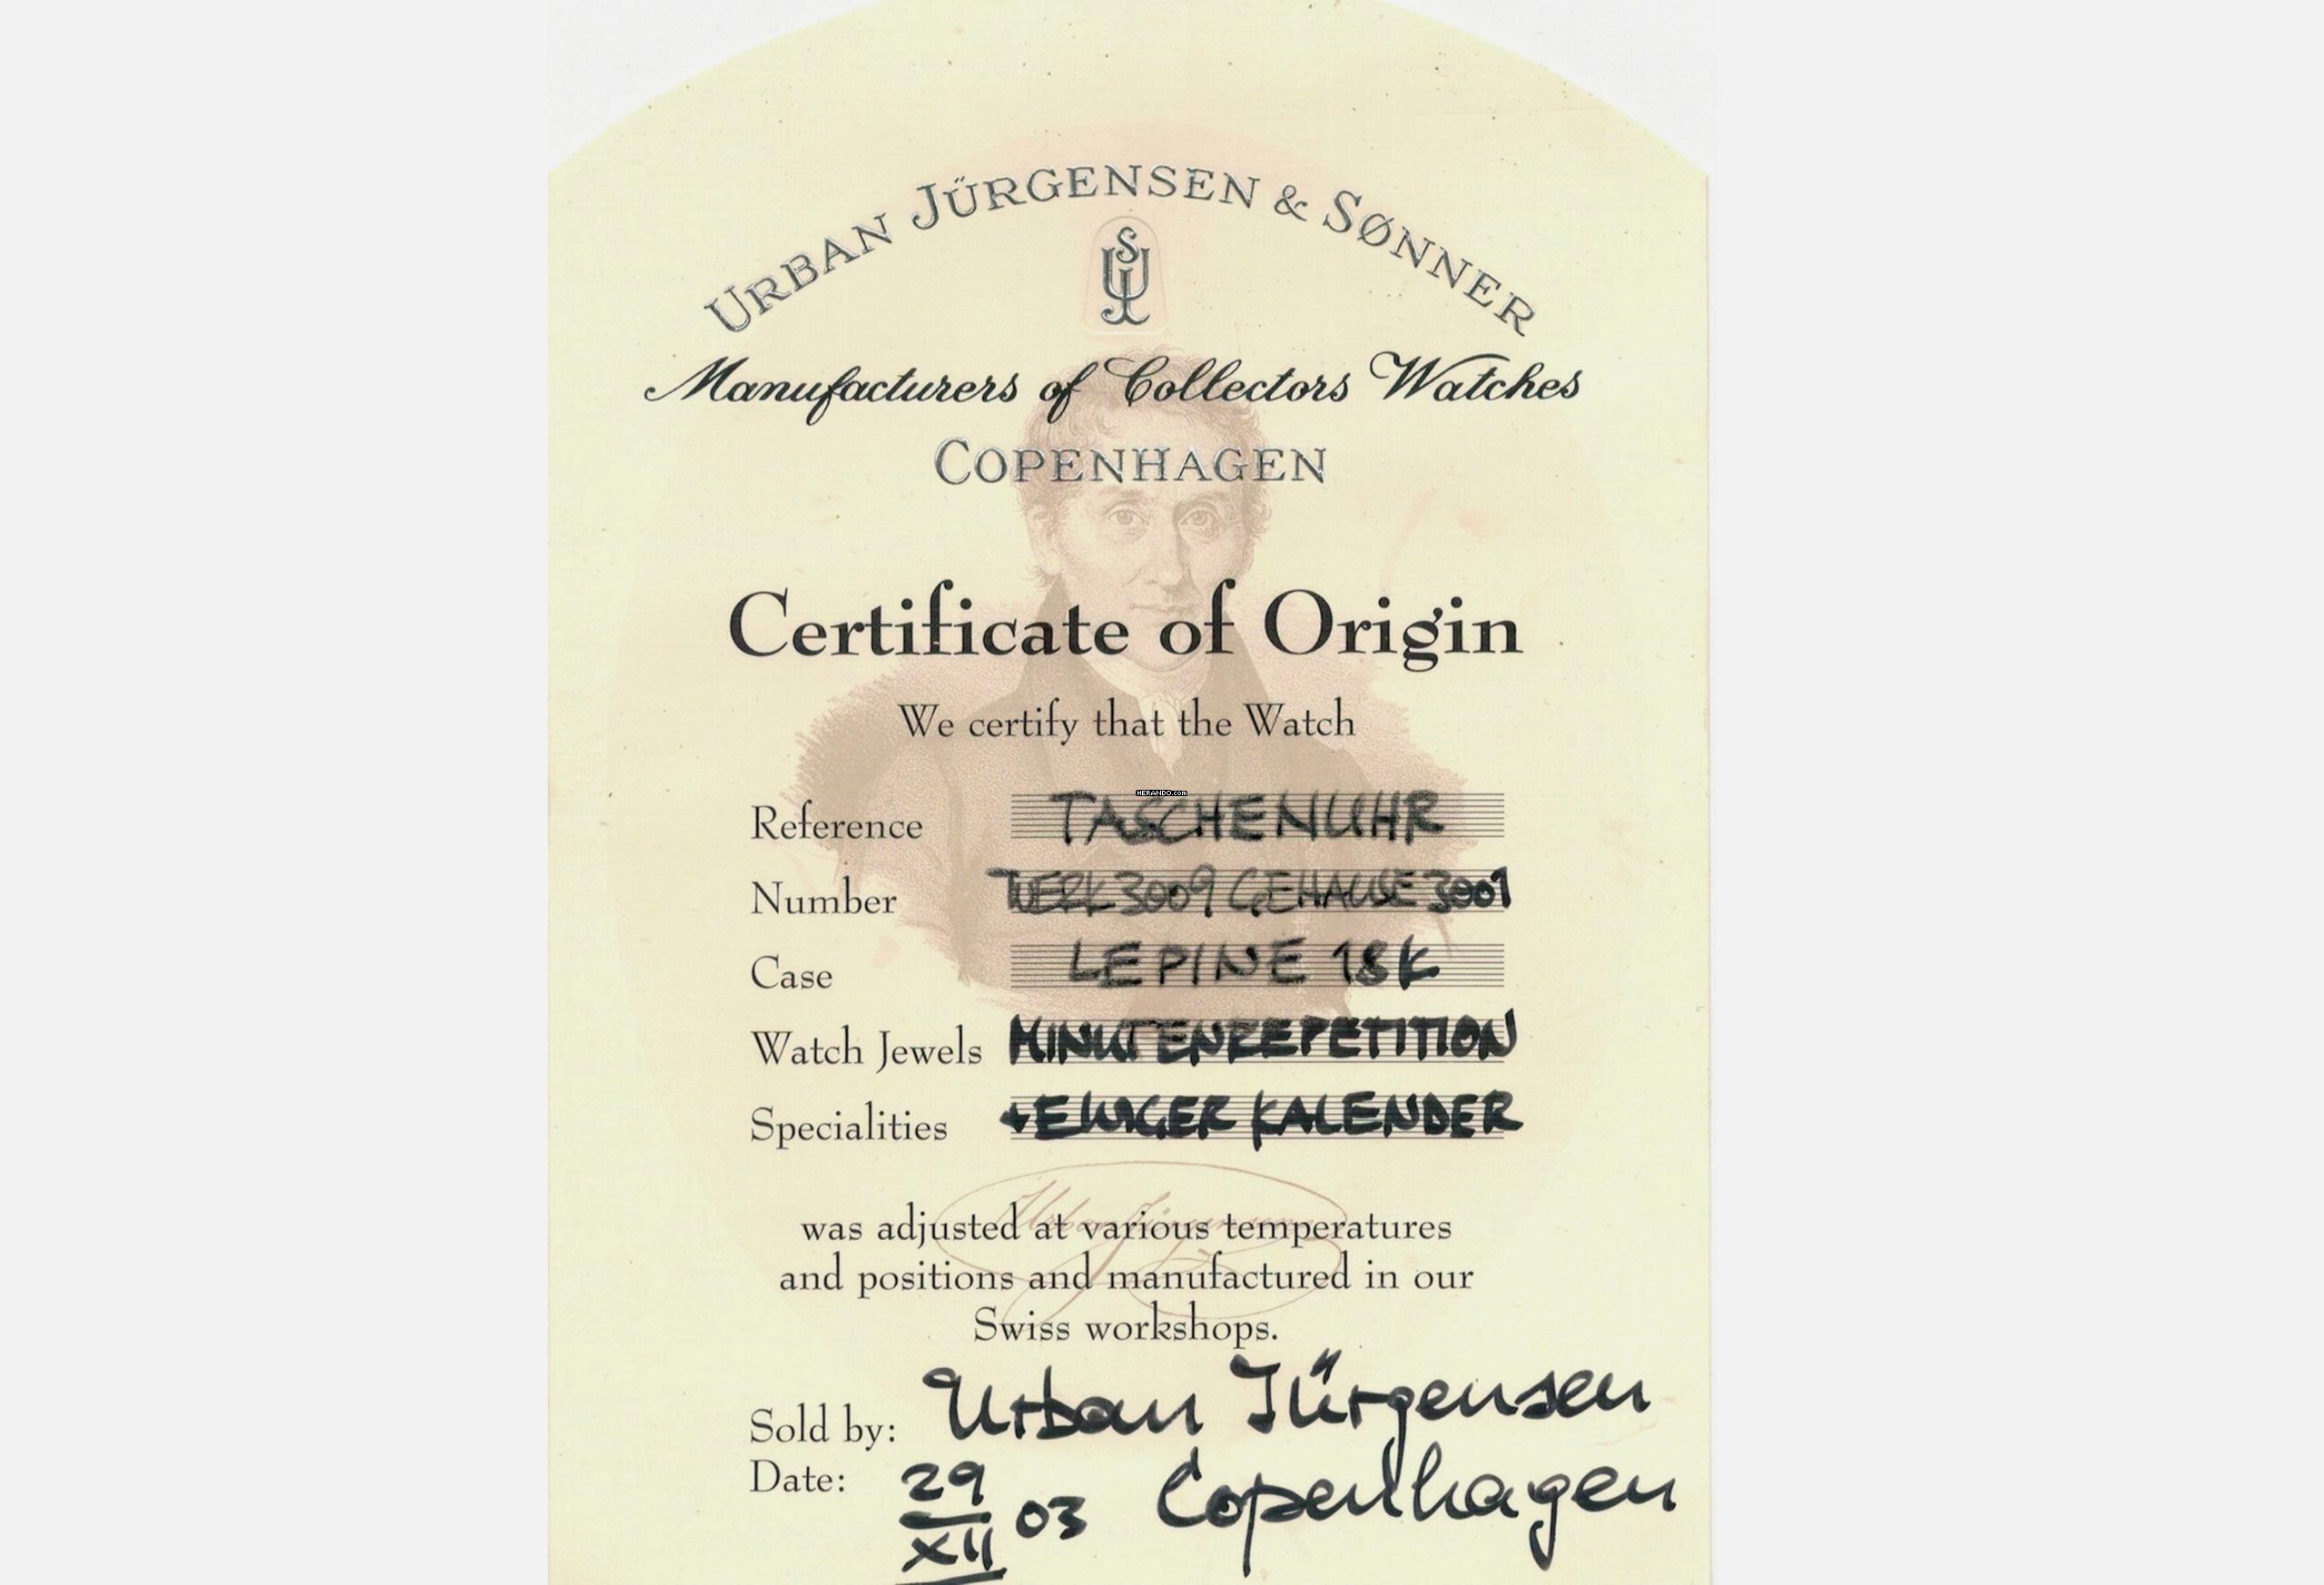 URBAN JÜRGENSEN & SØNNER
Manufacturers of Collectors Watches
COPENHAGEN
Certificate of Origin
We certify that the Watch
HERANDO.com
Reference TASCHENUHR
Number WERK 3009 GEHAUSE 3001
Case LEPINE 18K
Watch Jewels MINUTENREPETITION
Specialities +EWIGER KALENDER
was adjusted at various temperatures
and positions and manufactured in our
Swiss workshops.
Sold by: Urban Jürgensen
Date: 29/XII 03 Copenhagen